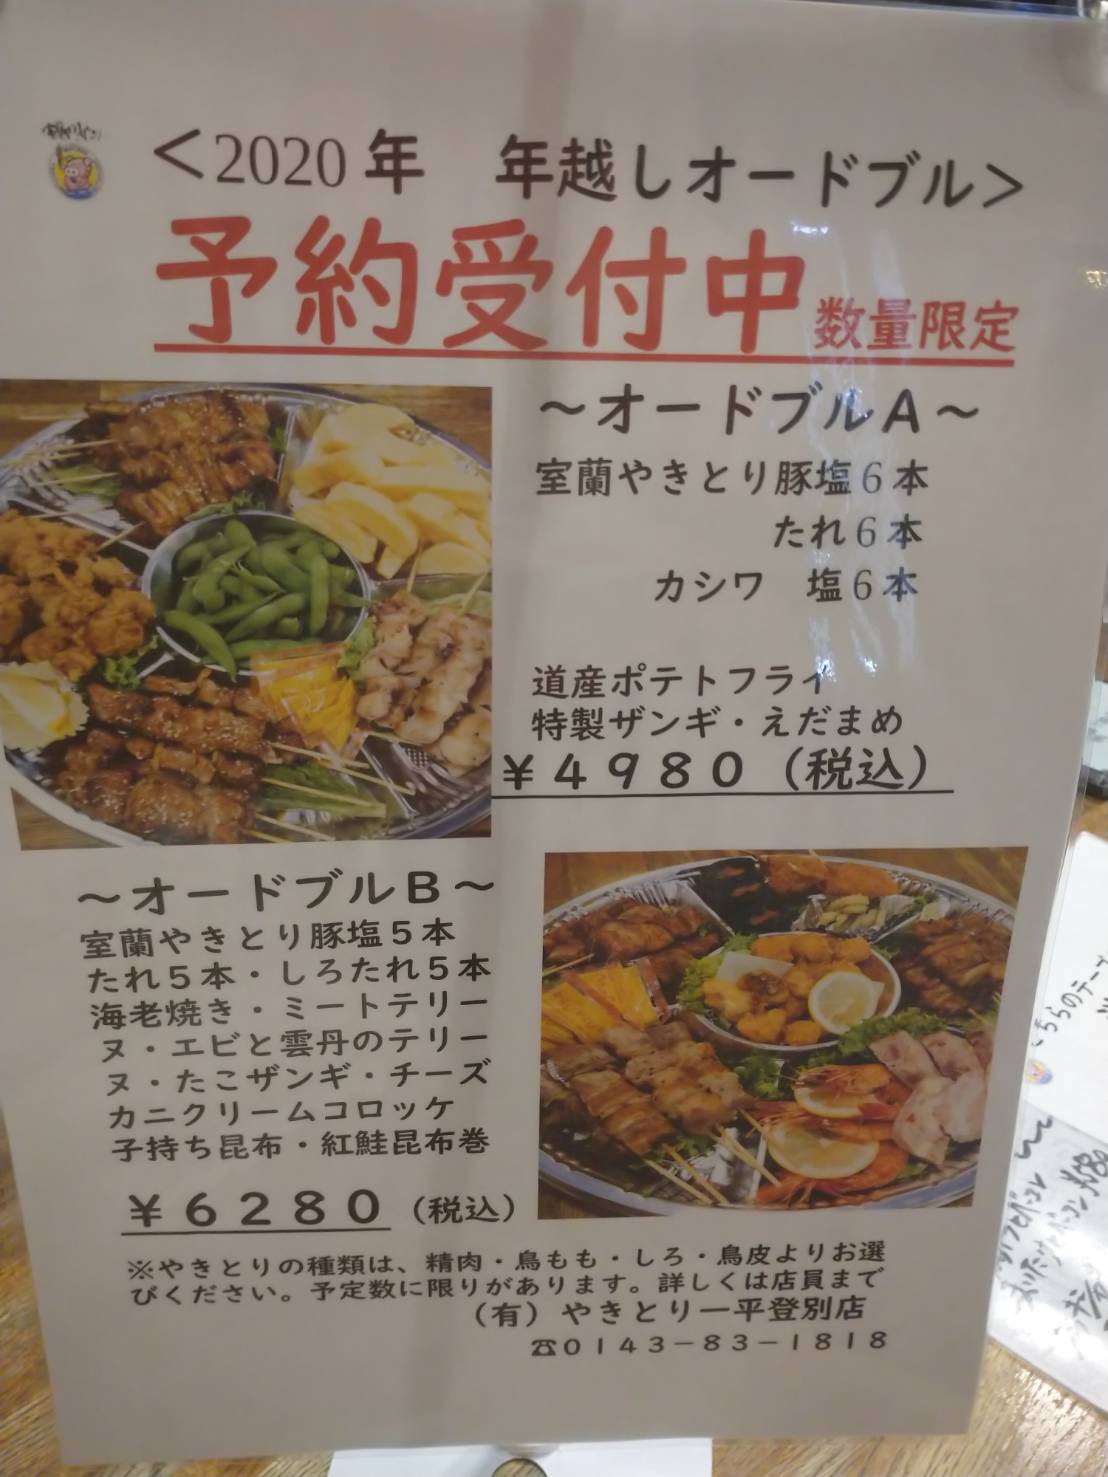 ＜2020年　年越しオードブル＞
予約受付中 数量限定
～オードブルA～
室蘭やきとり豚塩6本
たれ6本
カシワ　塩6本
道産ポテトフライ
特製ザンギ・えだまめ
￥4980（税込）
～オードブルB～
室蘭やきとり豚塩5本
たれ5本・しろたれ5本
海老焼き・ミートテリー
ヌ・エビと雲丹のテリー
ヌ・たこザンギ・チーズ
カニクリームコロッケ
子持ち昆布・紅鮭昆布巻
￥6280（税込）
※やきとりの種類は、精肉・鳥もも・しろ・鳥皮よりお選
びください。予定数に限りがあります。詳しくは店員まで
（有）やきとり一平登別店
☎0143－83－1818